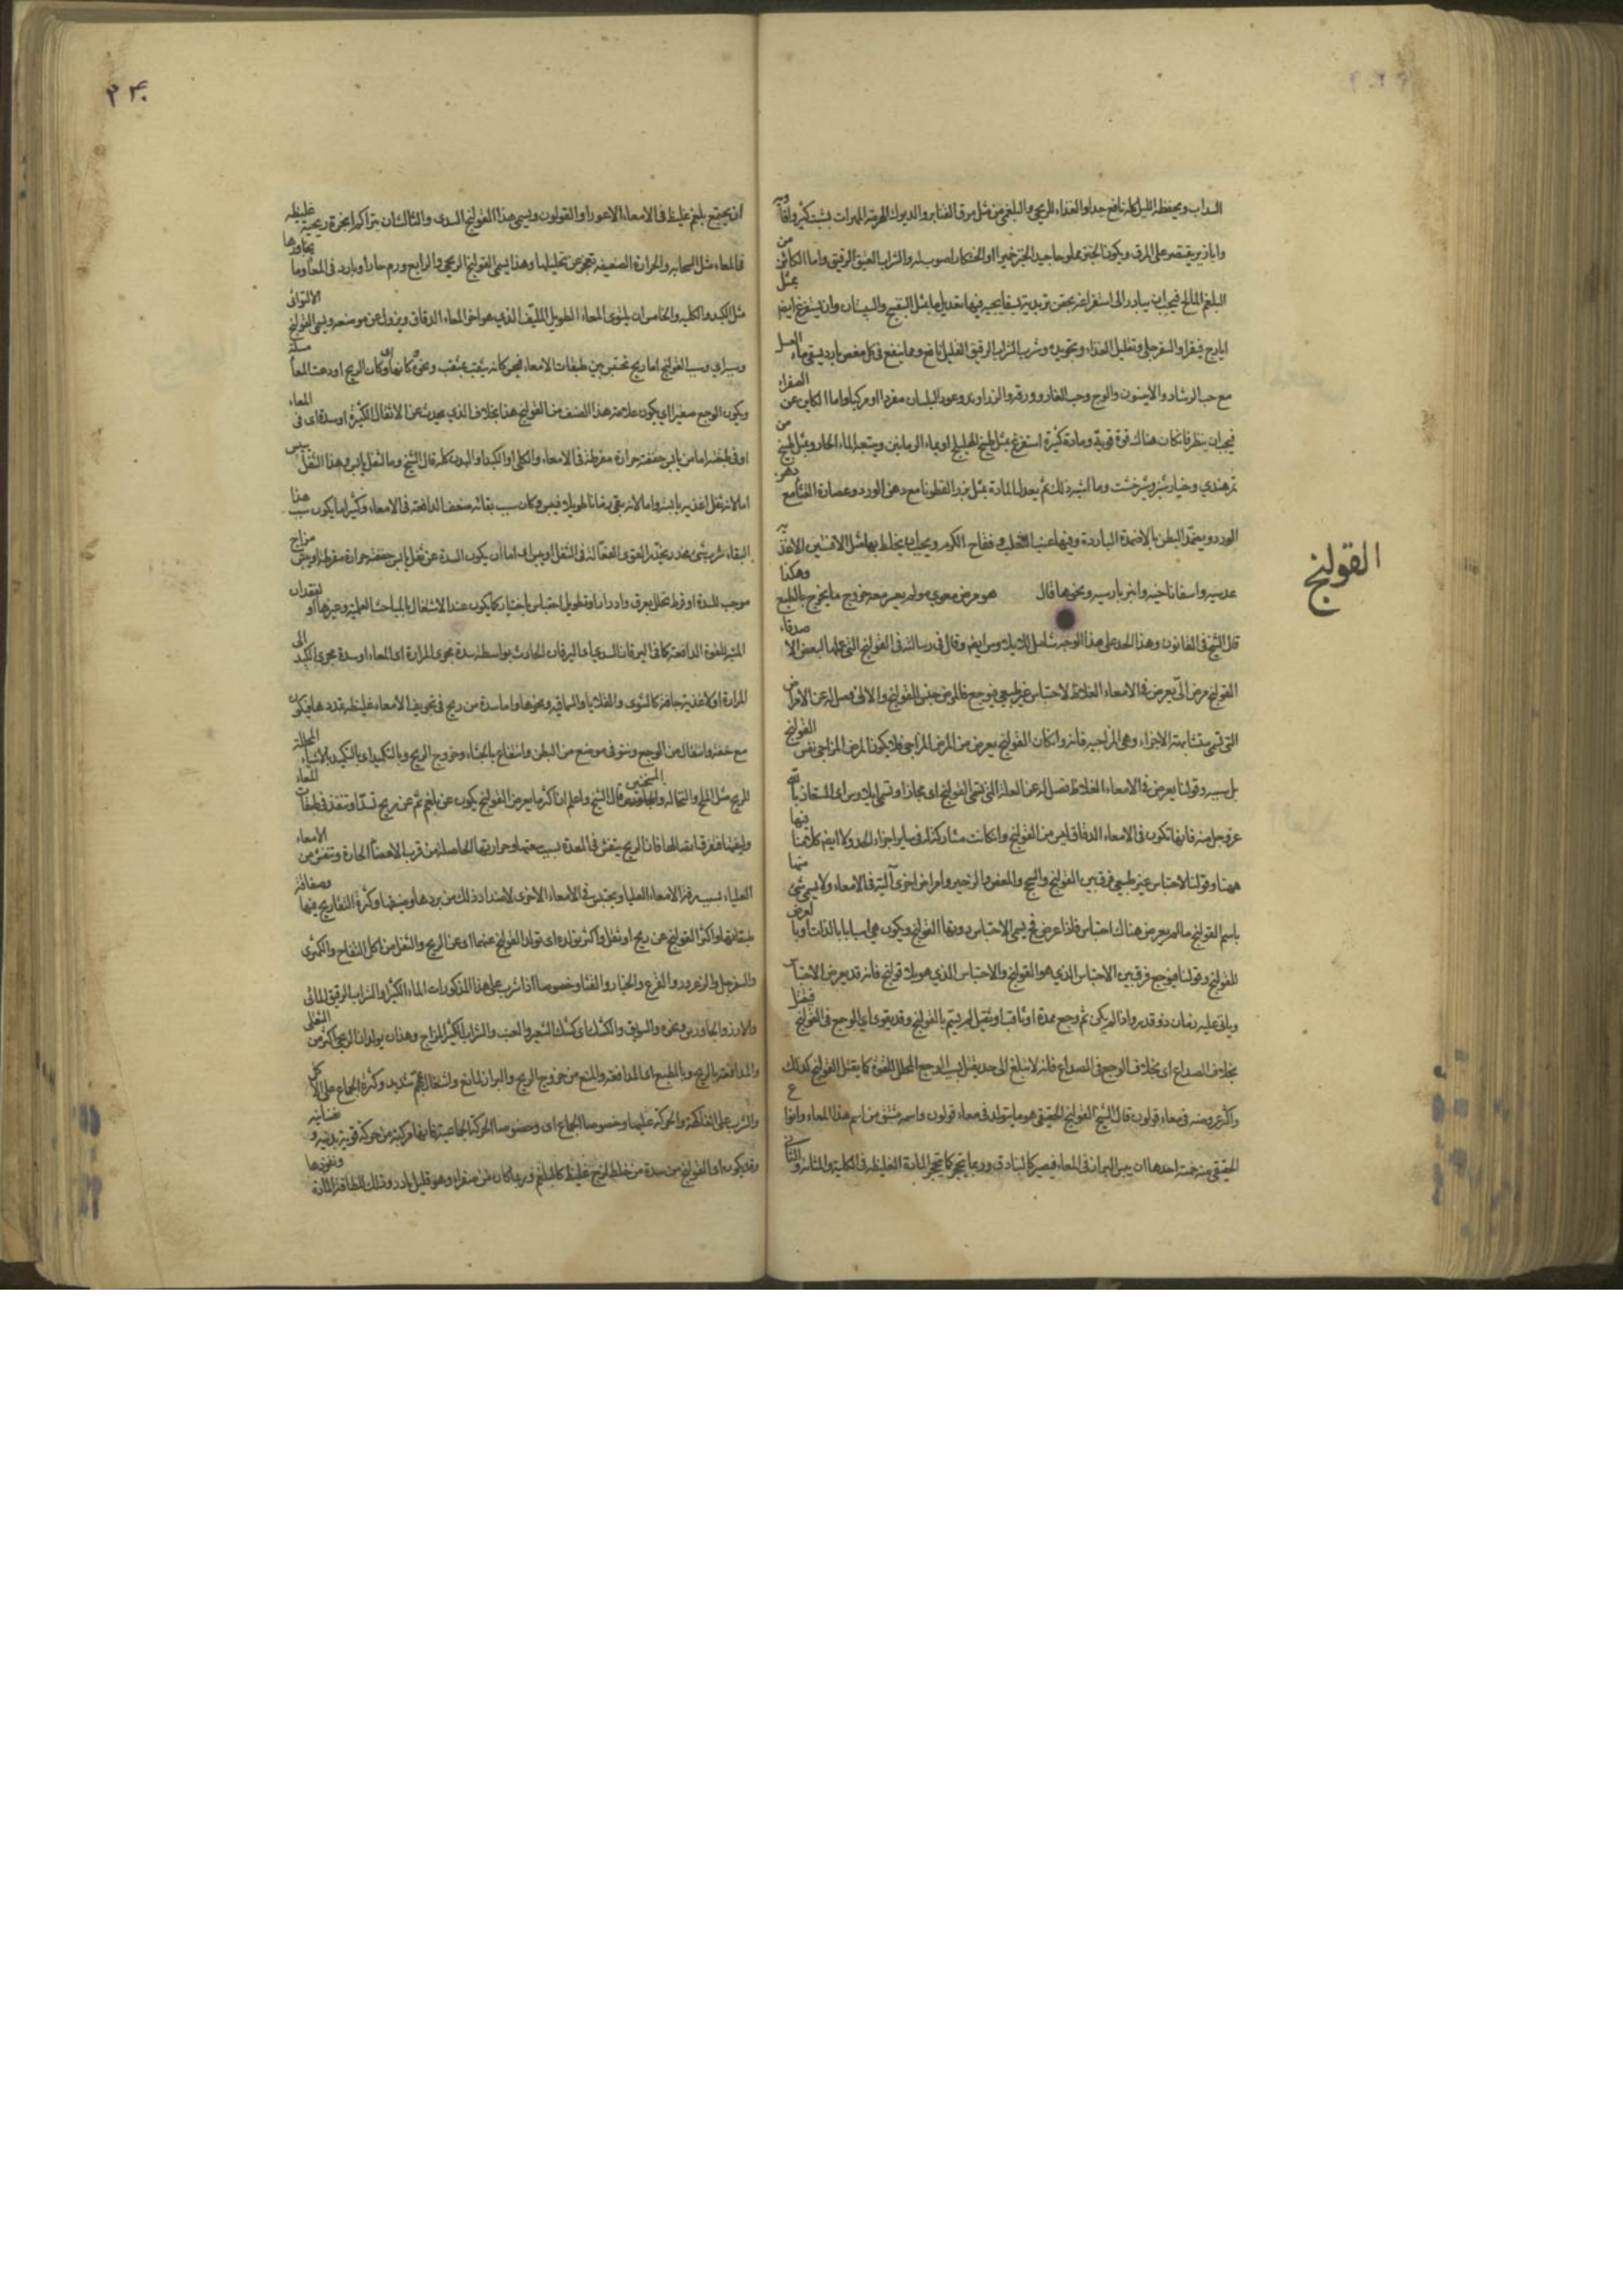 السداب ويحفظه الليل كله نافع جدا والغذاء للريحي والبلغمي من مثل مرق القنابر والديوك الهرمة المهرات بشبت كثير وافاويه
وابازير يقتصر على المرق ويكون الخبز مملوحا جيد الخبز خميرا او الخشكار اصوب له والشراب العتيق الرقيق واما الكائن من
البلغم المالح فيجب ان يبادر الى استفراغه بحقن تربدية بسفايجية فيها تعديل ما بمثل البنفسج والسبستان وان يستفرغ ايضا بمثل
ايارج فيقرا والسفرجلي وتقليل الغذاء وتجويده وشرب الشراب الرقيق القليل نافع ومما ينفع في كل مغص بارد يستقى ماء العسل
مع حب الرشاد والانيسون والوج وحب الغار وورقه والزراوند وعود البلسان مفردا او مركبا واما الكاين عن الصفراء
فيجب ان ينظر فان كان هناك قوة قوية ومادة كثيرة استفرغ بمثل طبيخ الهليلج او بماء الرمانين ويتبعه الماء الحار وبمثل طبيخ من
تمر هندي وخيار شنبر وشيرخشت وما اشبه ذلك ثم يعدل المادة بمثل بزر القطونا مع دهن الورد وعصارة القثا مع دهن
الورد ويضمد البطن بالاضمدة الباردة وفيها عنب الثعلب وفقاح الكرم ويجب ان يخلط بها مثل الافسنتين الاغذية
عدسية واسفاناخية وانبرباريسية ونحوها قال هو مرض معوي مولم يعسر معه خروج ما يخرج بالطبع وهكذا
قال الشيخ في القانون وهذا الحد على هذا الوجه شامل للايلاوس ايضا وقال في رسالته في القولنج التي عملها لبعض الاصدقاء
القولنج مرض الي يعرض في الامعاء الغلاظ لاحتباس غير طبيعي فيوجع فالمرض جنس للقولنج والالي فصل له عن الامراض
التي تسمى متشابهة الاجزاء وهي المزاجية فانه وان كان القولنج يعرض من المرض المزاجي فلا يكون المرض المزاجي نفس القولنج
بل سببه وقولنا يعرض في الامعاء الغلاظ فصل له عن العلة التي تسمى القولنج اى مجازا وتسمى ايلاوس اى المستعاذ بالله
عز وجل منه فانها تكون في الامعاء الدقاق ليس من القولنج وان كانت مشاركة له في ساير اجزاء الحد ولا ايضا كلامنا فيها
ههنا وقولنا لاحتباس غير طبيعي فرق بين القولنج والسحج والمغص والزحير وامراض اخرى آلية في الامعاء ولا يسمى شئ منها
باسم القولنج ما لم يعرض هناك احتباس فاذا عرض فح يسمى الاحتباس دونها القولنج ويكون هي اسبابا بالذات او بالعرض
للقولنج وقولنا فيوجع فرق بين الاحتباس الذي هو القولنج والاحتباس الذي هو بلا قولنج فانه قد يعرض الاحتباس
وياتي عليه زمان ذو قدر واذا لم يكن ثم وجع ممدد او ثاقب او ثقيل لم يسم بالقولنج وقد يقوى اي الوجع في القولنج فيقتل
بخلاف الصداع اى بخلاف الوجع في الصداع فانه لا يبلغ الى حد يقتل بسبب الوجع المحلل للقوة كما يقتل القولنج كذلك
واكثر عروضه في معاء قولون قال الشيخ القولنج الحقيقي هو ما يتولد في معاء قولون واسمه مشتق من اسم هذا المعاء وانواع
الحقيقي منه خمسة احدها ان يبس البراز في المعاء فيصير كالبنادق وربما يتحجر كما يتحجر المادة الغليظة في الكلية والمثانة والثاني
القولنج
٢٣٠
ان يجتمع بلغم غليظ في الامعاء الاعور او القولون ويسمى هذا القولنج السدى والثالث ان يتراكم ابخرة ريحية غليظة
في المعاء مثل السحابة والحرارة الضعيفة تعجز عن تحليلها وهذا يسمى القولنج الريحي والرابع ورم حار او بارد في المعا او ما يجاورها
مثل الكبد والكلية والخامس ان يلتوى المعاء الطويل الملتف الذي هو اخر المعاء الدقاق ويزول عن موضعه ويسمى القولنج الالتوائى
وسببه اي سبب القولنج اما ريح تحتبس بين طبقات الامعاء فيحس كانه يثقب بمثقب ونحوه كانها اى وكان الريح اودعت المعا مسلة
ويكون الوجع صغيرا اي يكون علامة هذا الصنف من القولنج هذا بخلاف الذي يحدث عن الاثفال الكثيرة او سدة اى في المعاء
او في طبقته اما من يابس جففته حرارة مفرطة في الامعاء والكلى او الكبد او البدن كله قال الشيخ وما الثفل يابس وهذا الثفل يبس
اما لانه ثفل اغذية يابسة واما لانه بقي زمانا طويلا فيبس وكان سبب بقائه ضعف الدافعة في الامعاء وكثيرا ما يكون سبب هذا
البقاء شرب شئ مخدر يخدر القوى الفعالة في الثفل او يبس اى اما ان يكون السدة عن ثفل يابس جففته حرارة مفرطة او يبس مزاج
موجب للسدة او فرط تحلل بعرق وادرار او تطويل احتباس باختيار كما يكون عند الاشتغال بالمباحث العلمية وغيرها او لفقدان
المنبه للقوة الدافعة كما في اليرقان السدي اى اليرقان الحادث بواسطة سدة مجرى المرارة اى المعاء او سدة مجرى الكبد الى
المرارة او لاغذية جافة كالشوى والقلايا والسماقية ونحوها واما سدة من ريح في تجويف الامعاء غليظة تمددها فيكون
مع خفة وانتقال من الوجع ونتو في موضع من البطن وانتفاع بالجشاء وخروج الريح وبالتكميد اى بالتكميد بالاشياء المحللة
للريح مثل الملح والنخالة والجاورس المسخنين قال الشيخ واعلم ان اكثر ما يعرض القولنج يكون عن بلغم ثم عن ريح تسد او تنفذ في طبقات المعاء
وليفها فتفرق اتصالها فان الريح يتفش في المعدة بسبب سعتها وحرارتها الحاصلة من قرب الاعضآ الحارة وتتفش من الامعاء
العليا بسبب رقة الامعاء العليا ويحتبس في الامعاء الاخرى لاضداد ذلك من بردها وضيقها وكثرة التعاريج فيها وصفاقة
طبقاتها واكثر القولنج عن ريح او ثفل واكثر تولده اى تولد القولنج عنهما او عن الريح والثفل من اكل التفاح والكمثرى
والسفرجل والزعرور والقرع والخيار والقثا وخصوصا اذا شرب على هذا المذكورات الماء الكثير او الشراب الرقيق المائى
والارز والجاورس ونحوه والسويق والكشك اى كشك الشعير والعنب والشراب الكثير المزاج وهذان يولدان الريحي اكثر من الثفلى
والمدافعة بالريح وبالطبع اى المدافعة والمنع من خروج الريح والبراز لمانع واشتغال بمهم شديد وكثرة الجماع على الاكل
والشرب على الفاكهة والحركة عليها وخصوصا الجماع اى وخصوصا الحركة الجماعية فانها مركبة من حركة قوية بدنية ونفسانية
وقد يكون اى القولنج من سدة من خلط لزج غليظ كالبلغم وربما كان من صفراء وهو قليل نادر وذلك للطافة المادة ونفوذها